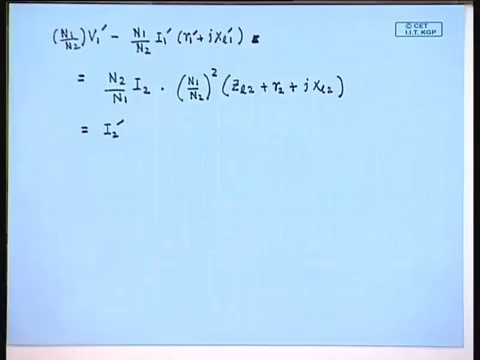 © CET
I.I.T. KGP
(N1/N2) V1′ − N1/N2 I1′ (r1′ + j xl1′) =
= N2/N1 I2 · (N1/N2)² (Zl2 + r2 + j xl2)
= I2′